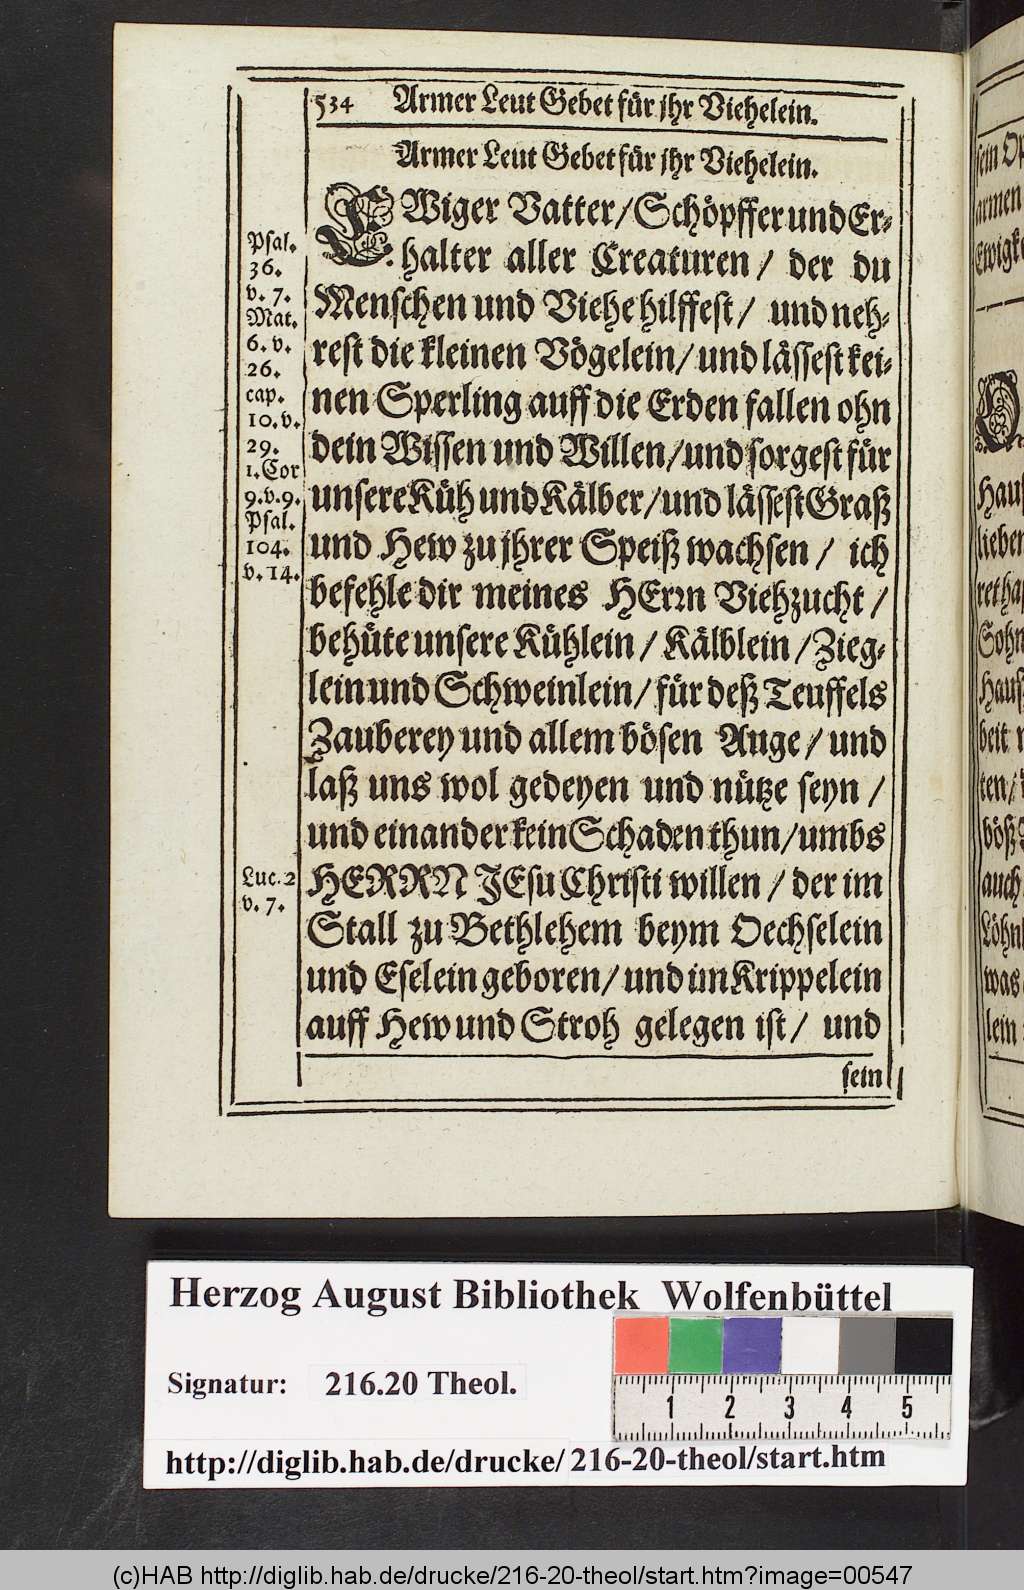 534 Armer Leut Gebet für jhr Viehelein.
Armer Leut Gebet für jhr Viehelein.
EWiger Vatter/Schöpffer und Er-
halter aller Creaturen/ der du
Menschen und Viehe hilffest/ und neh-
rest die kleinen Vögelein/und lässest kei-
nen Sperling auff die Erden fallen ohn
dein Wissen und Willen/und sorgest für
unsere Küh und Kälber/und lässest Graß
und Hew zu jhrer Speiß wachsen/ ich
befehle dir meines HErrn Viehzucht/
behüte unsere Kühlein/Kälblein/Zieg-
lein und Schweinlein/für deß Teuffels
Zauberey und allem bösen Auge/und
laß uns wol gedeyen und nütze seyn/
und einander kein Schaden thun/umbs
HERRN JEsu Christi willen/der im
Stall zu Bethlehem beym Oechselein
und Eselein geboren/und im Krippelein
auff Hew und Stroh gelegen ist/ und
sein
Psal.
36.
v. 7.
Mat.
6. v.
26.
cap.
10. v.
29.
1. Cor
9. v. 9.
Psal.
104.
v. 14.
Luc. 2
v. 7.
sein
armen
Hauß
lieben
Sohn
Hauß
beit
ten/
böß
auch
was
lein
Herzog August Bibliothek Wolfenbüttel
Signatur: 216.20 Theol.
1 2 3 4 5
http://diglib.hab.de/drucke/216-20-theol/start.htm
(c)HAB http://diglib.hab.de/drucke/216-20-theol/start.htm?image=00547